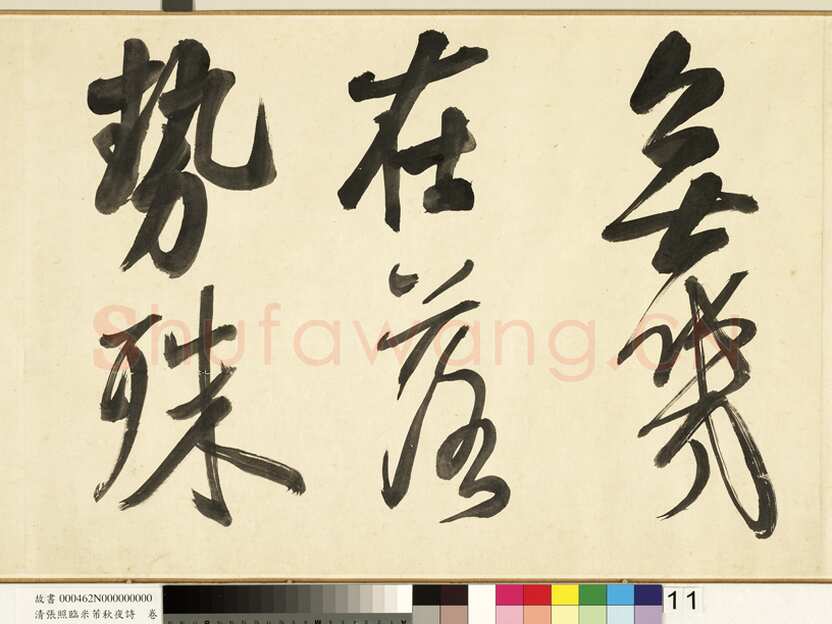 在落
勢殊
Shufawang.CN
故書 000462N000000000
清張照臨米芾秋夜詩 卷
11